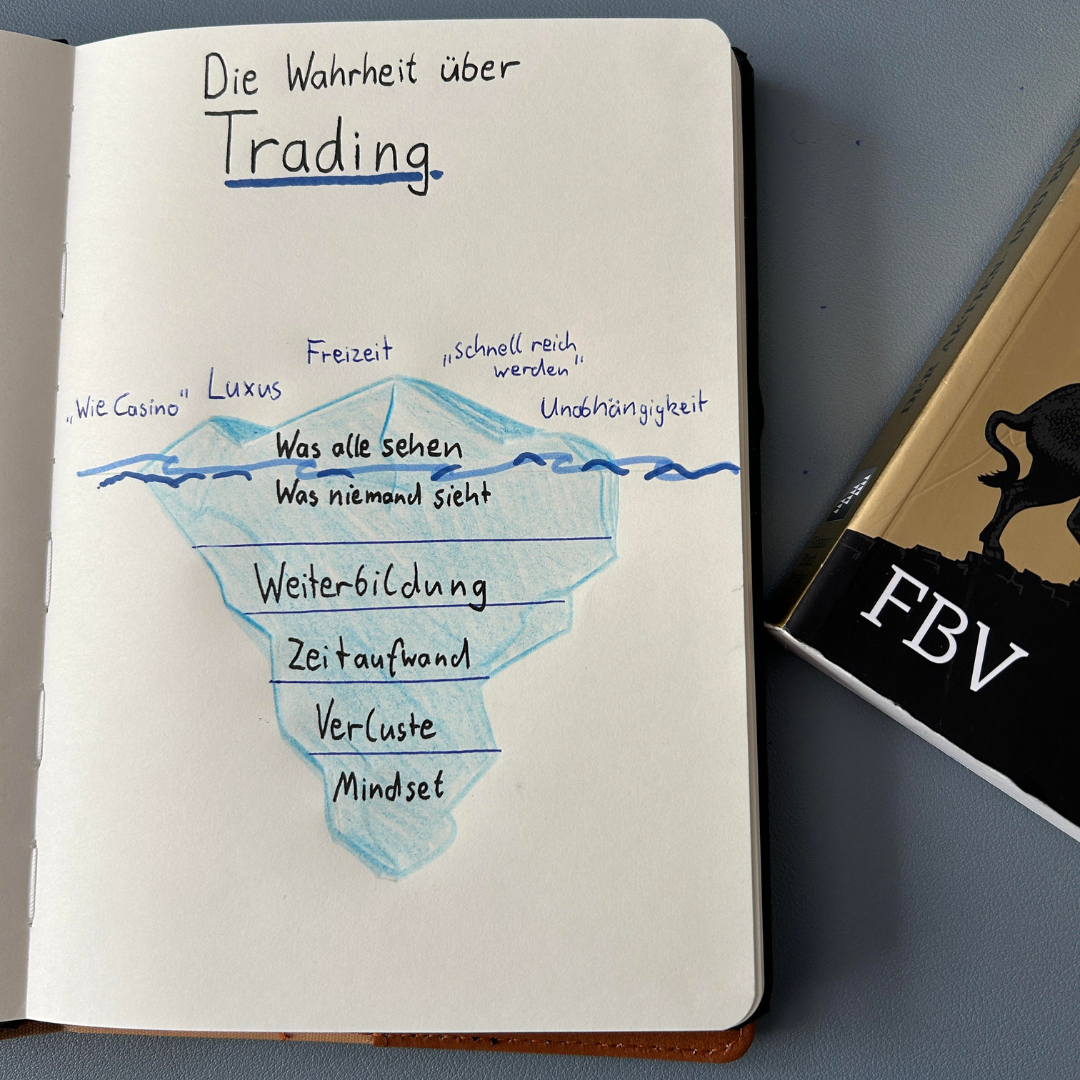 Die Wahrheit über
Trading.
Freizeit
„schnell reich
werden"
„Wie Casino"
Luxus
Unabhängigkeit
Was alle sehen
Was niemand sieht
Weiterbildung
Zeitaufwand
Verluste
Mindset
FBV